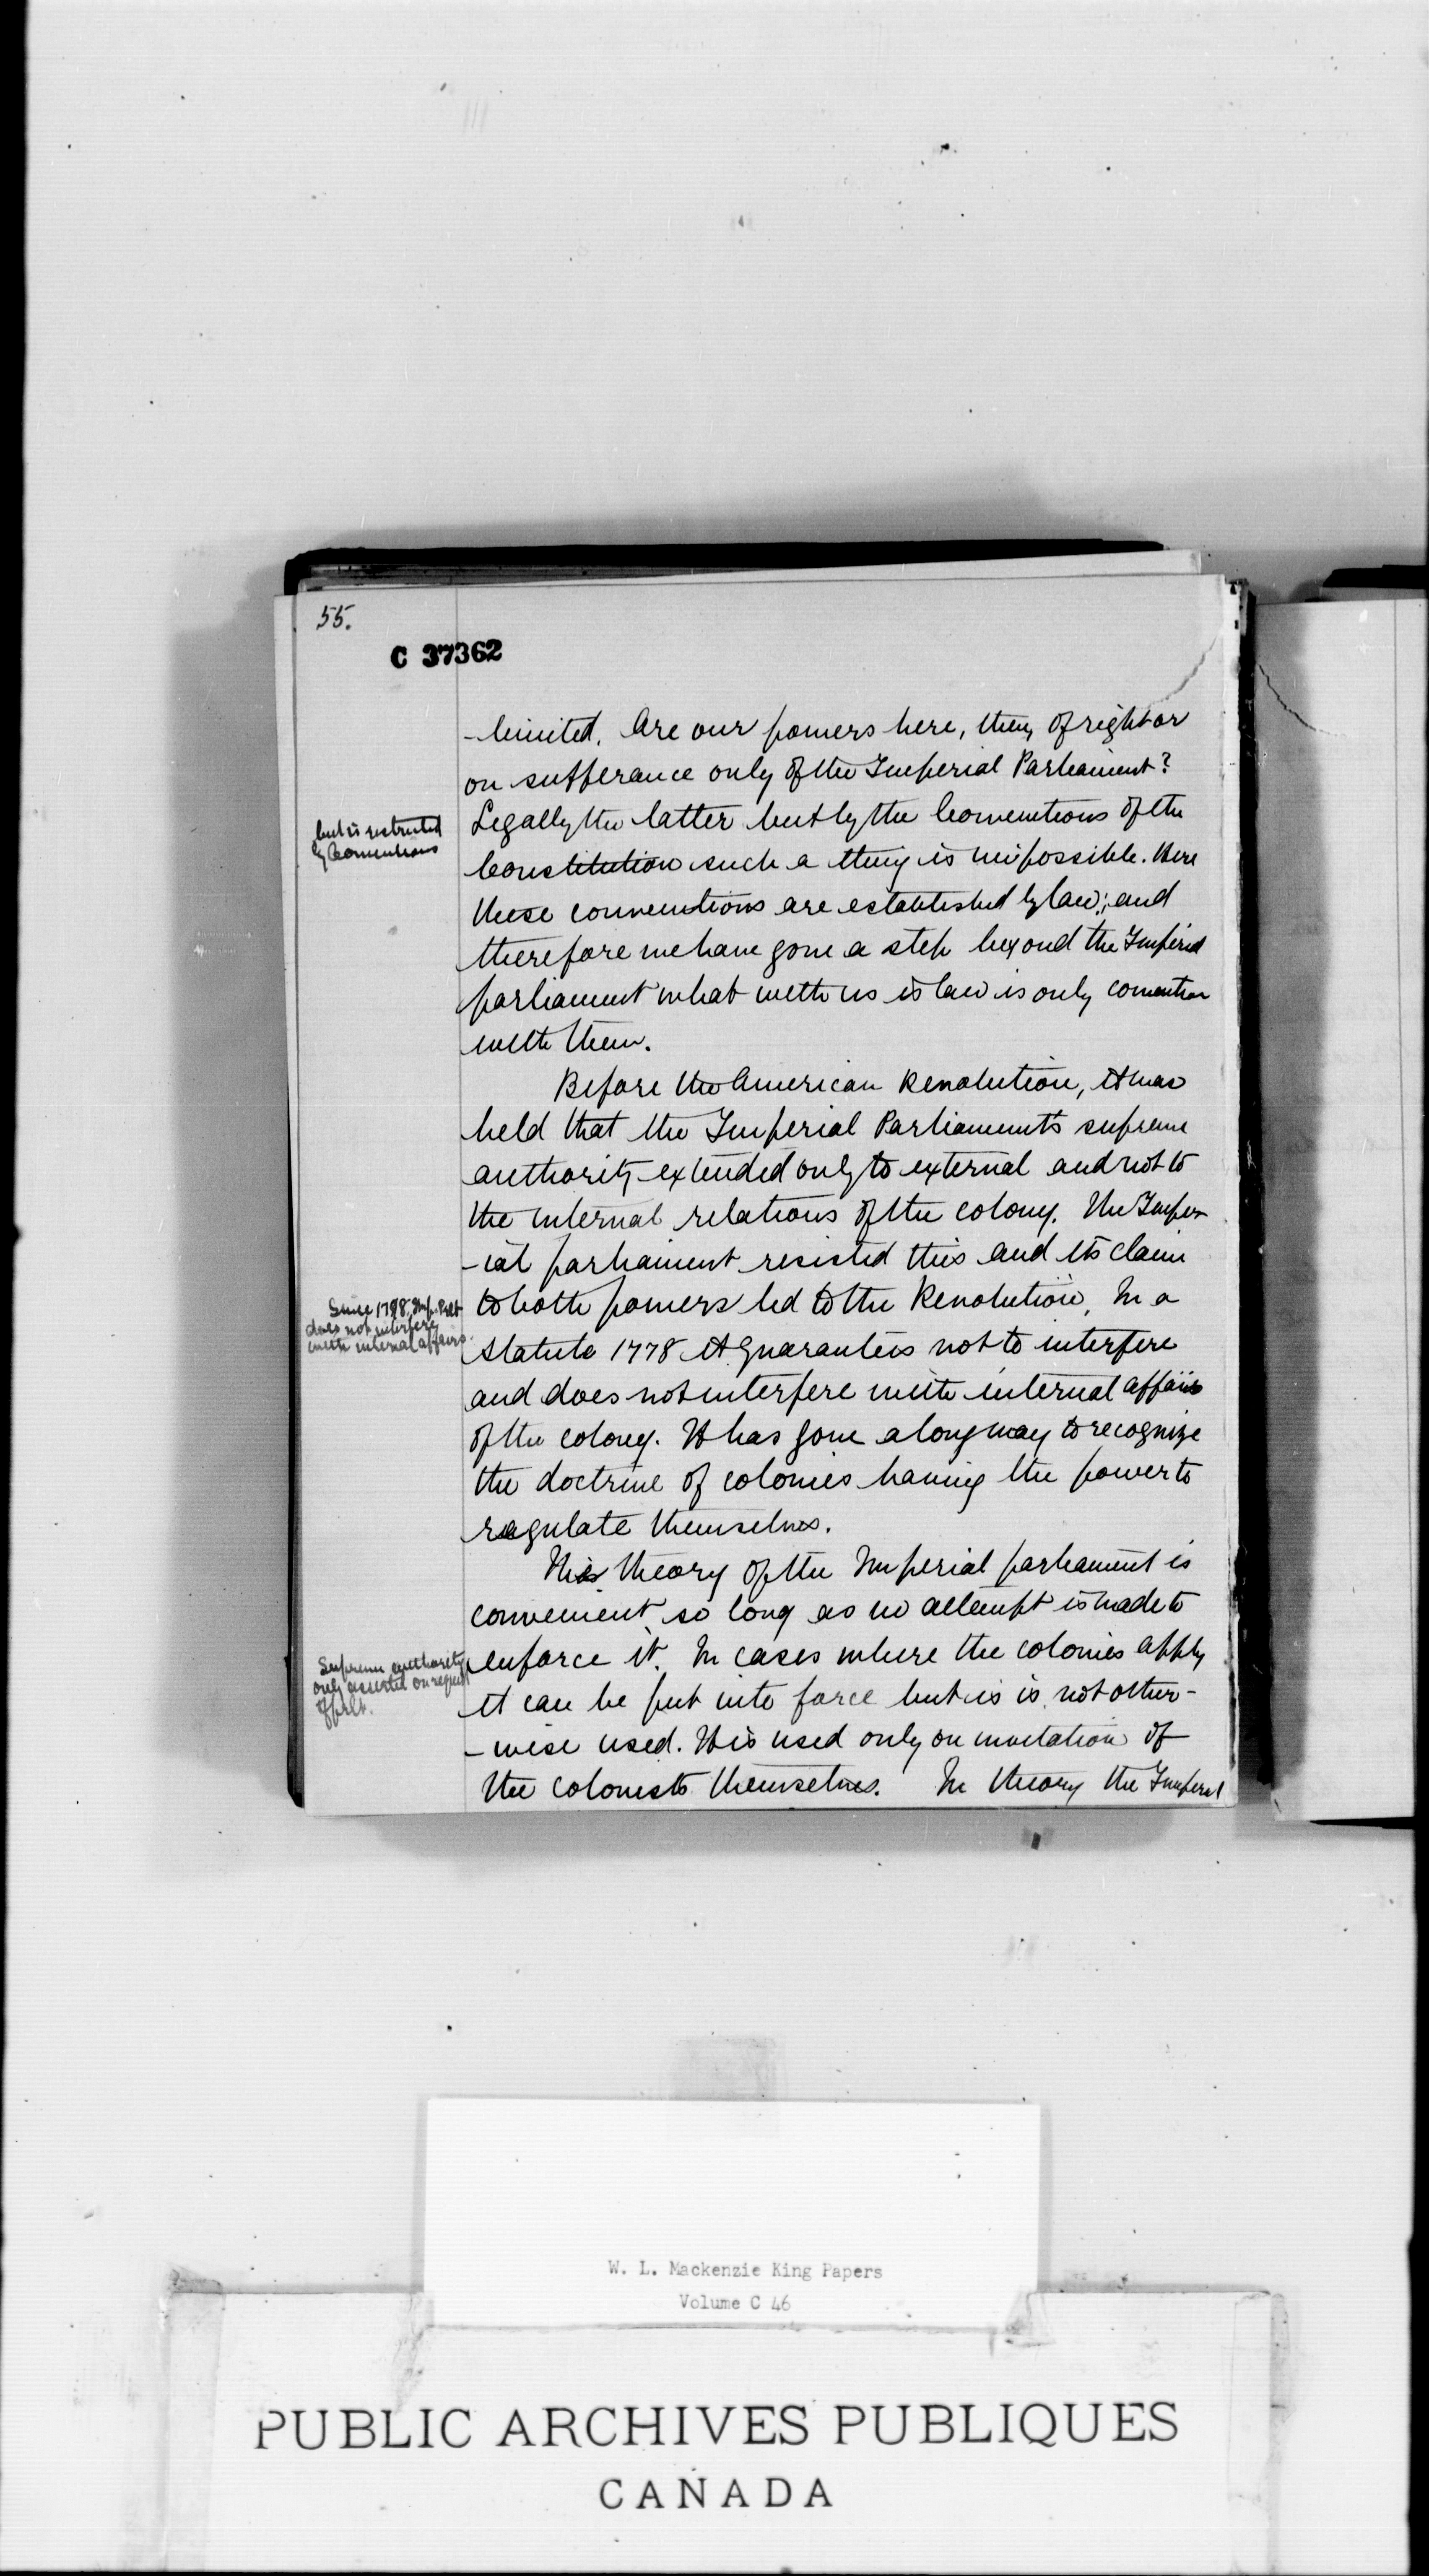 55.
C 37362
-limited. Are our powers here, then, of right or
on sufferance only of the Imperial Parliament?
but is restricted
by Conventions
Legally the latter but by the Conventions of the
Constitution such a thing is impossible. Here
these conventions are established by law; and
therefore we have gone a step beyond the Imperial
parliament what with us is law is only convention
with them.
Before the American Revolution, it was
held that the Imperial Parliament's supreme
authority extended only to external and not to
the internal relations of the colony. The Imper
-ial parliament resisted this and its claim
Since 1778, Imp. Parlt
does not interfere
with internal affairs.
to both powers led to the Revolution. In a
statute 1778 it guarantees not to interfere
and does not interfere with internal affairs
of the colony. It has gone a long way to recognize
the doctrine of colonies having the power to
regulate themselves.
This theory of the Imperial parliament is
convenient so long as no attempt is made to
Supreme authority
only asserted on request
of parlt.
enforce it. In cases where the colonies apply
it can be put into force but is is not other-
-wise used. It is used only on invitation of
the colonists themselves. In theory the Imperial
W. L. Mackenzie King Papers
Volume C 46
PUBLIC ARCHIVES PUBLIQUES
CANADA